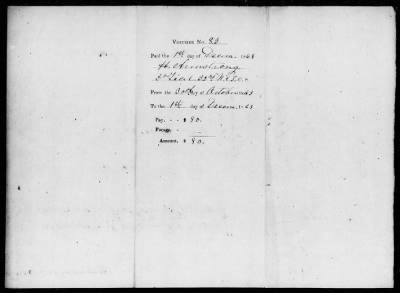 Voucher No. 23
Paid the 1st day of Decem 186
H. Armstrong
2nd Lieut
From the 30th day of October
To the 1st day of Decem 1863
Pay, - - $ 80.
Forage, -
Amount, $ 80.